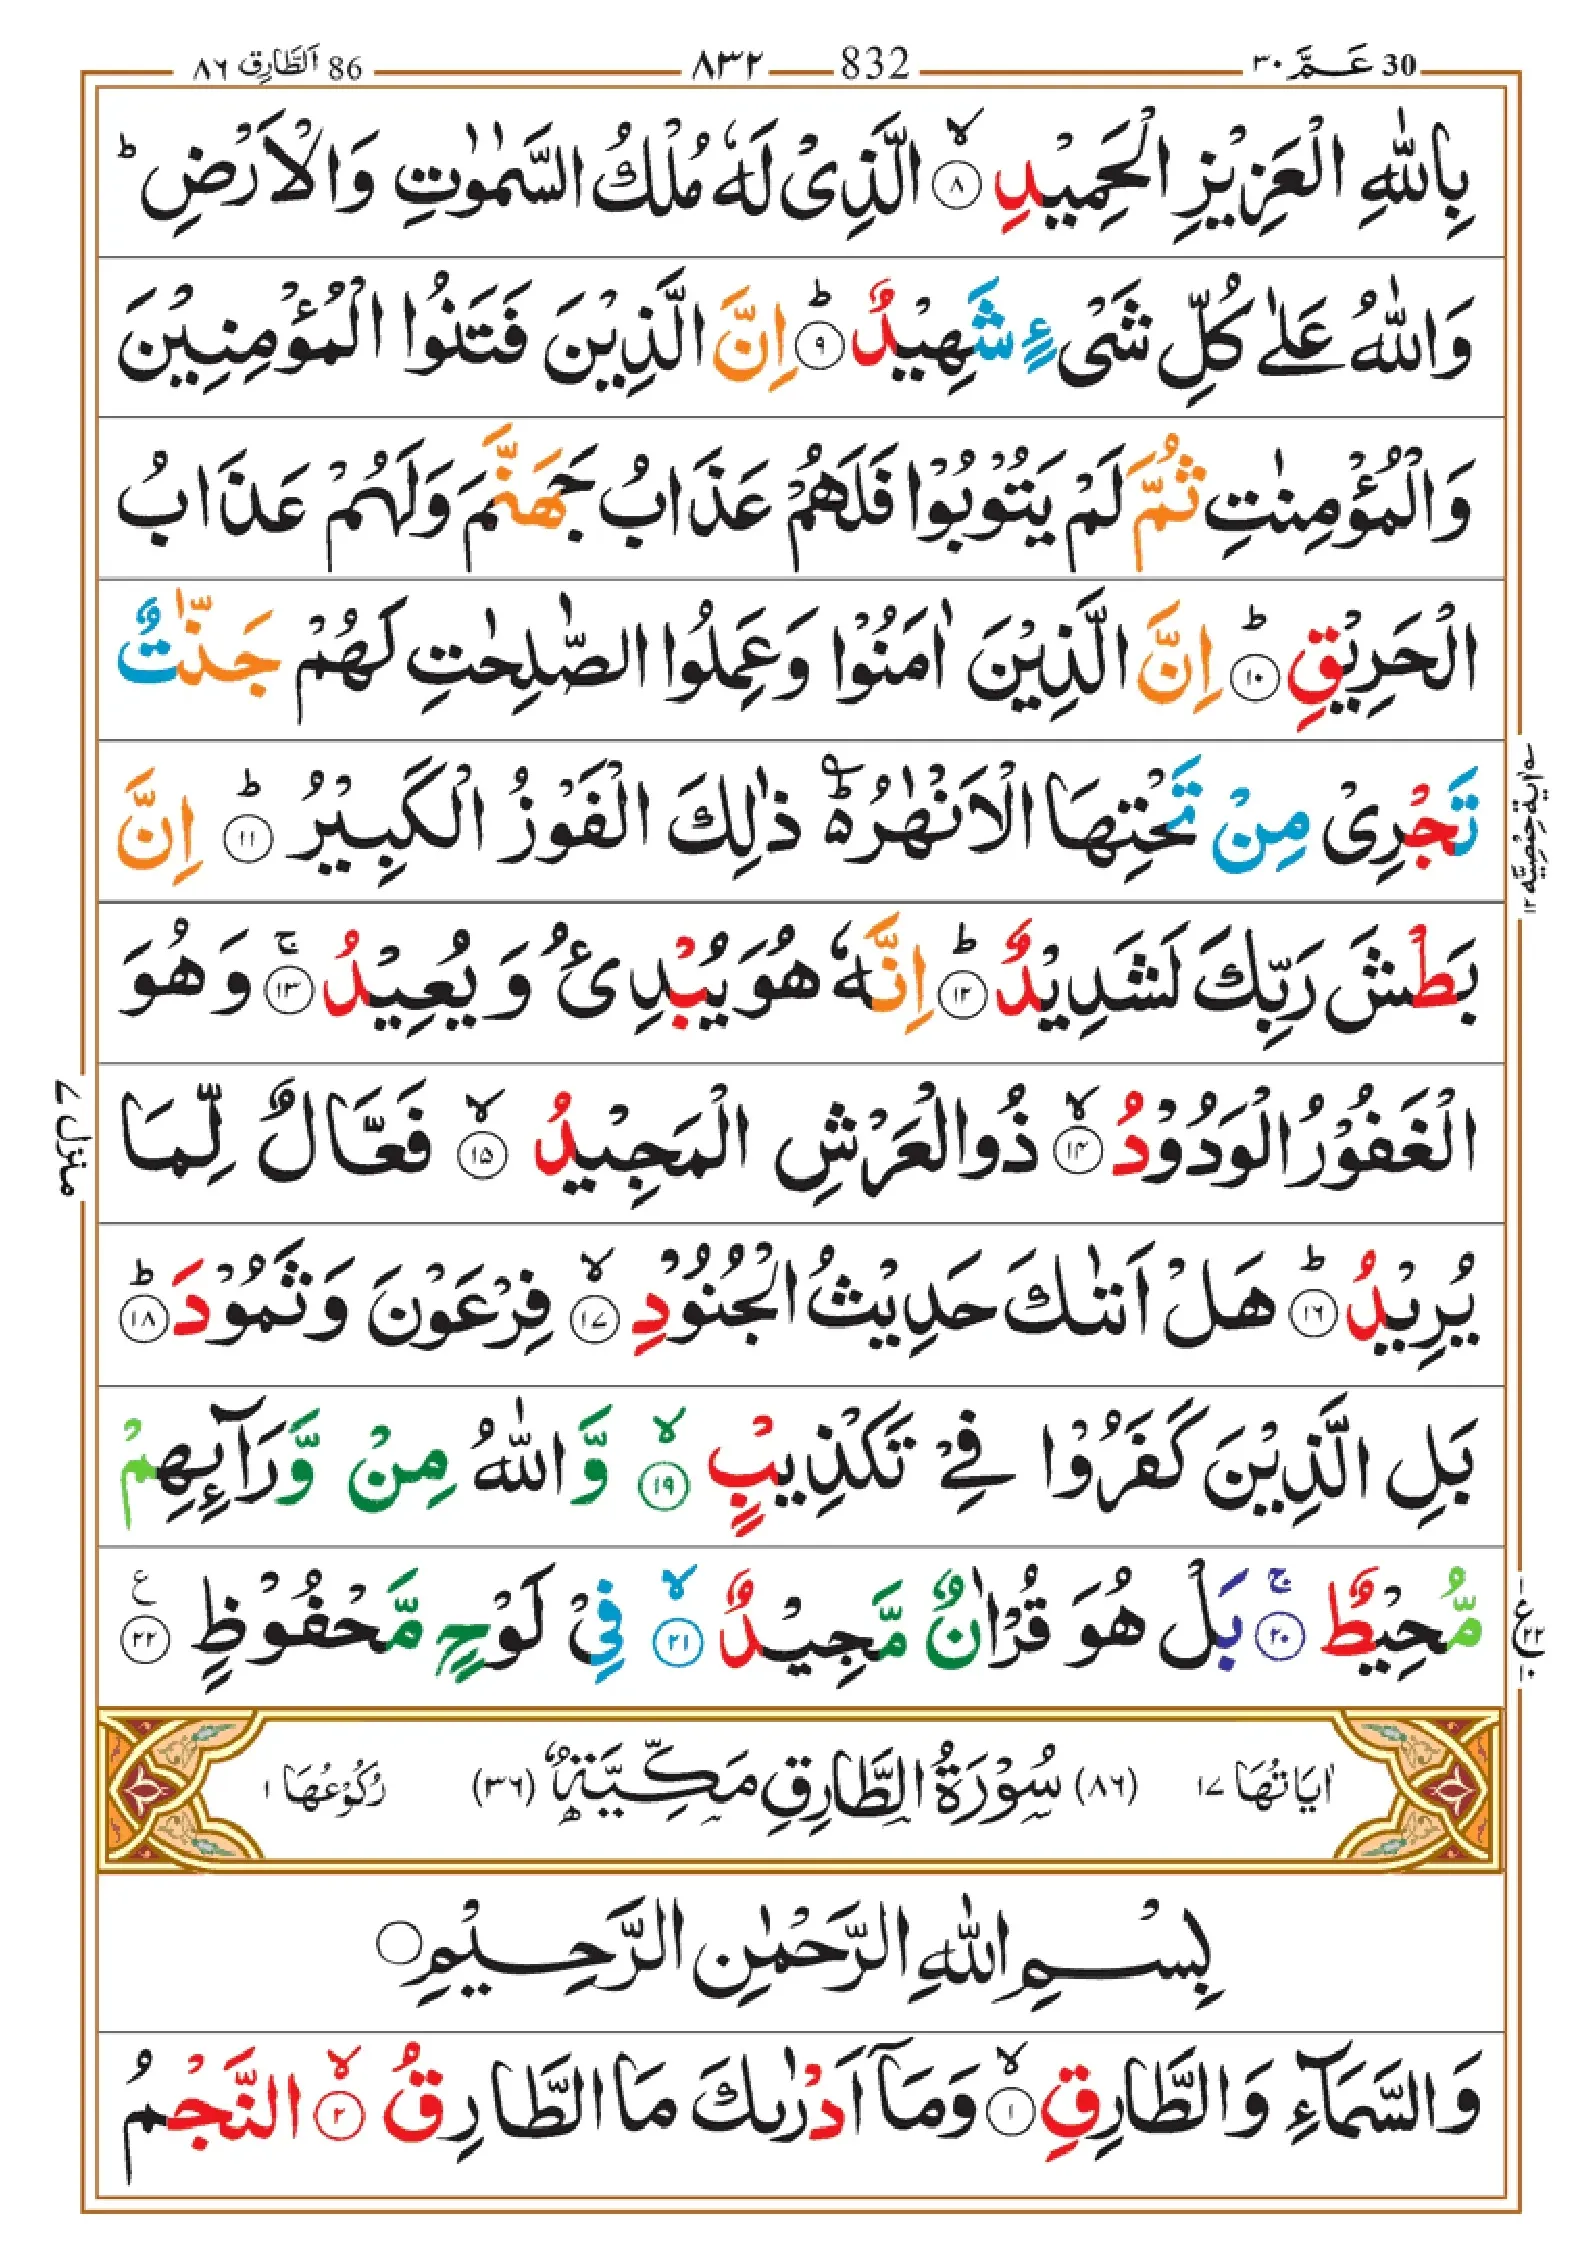 30 عَـمَّ ٣٠ 832 ٨٣٢ 86 اَلطَّارِق ٨٦
بِاللّٰهِ الْعَزِيْزِ الْحَمِيْدِ ۙ‏ ﴿٨﴾ الَّذِىْ لَهٗ مُلْكُ السَّمٰوٰتِ وَالْاَرْضِ ؕ
وَاللّٰهُ عَلٰى كُلِّ شَىْءٍ شَهِيْدٌ ؕ ﴿٩﴾ اِنَّ الَّذِيْنَ فَتَنُوا الْمُؤْمِنِيْنَ
وَالْمُؤْمِنٰتِ ثُمَّ لَمْ يَتُوْبُوْا فَلَهُمْ عَذَابُ جَهَنَّمَ وَلَهُمْ عَذَابُ
الْحَرِيْقِ ؕ ﴿١٠﴾ اِنَّ الَّذِيْنَ اٰمَنُوْا وَعَمِلُوا الصّٰلِحٰتِ لَهُمْ جَنّٰتٌ
تَجْرِىْ مِنْ تَحْتِهَا الْاَنْهٰرُ ؕ۵ ذٰلِكَ الْفَوْزُ الْكَبِيْرُ ؕ ﴿١١﴾ اِنَّ
بَطْشَ رَبِّكَ لَشَدِيْدٌ ؕ ﴿١٢﴾ اِنَّهٗ هُوَ يُبْدِئُ وَيُعِيْدُ ۚ ﴿١٣﴾ وَهُوَ
الْغَفُوْرُ الْوَدُوْدُ ۙ ﴿١٤﴾ ذُو الْعَرْشِ الْمَجِيْدُ ۙ ﴿١٥﴾ فَعَّالٌ لِّمَا
يُرِيْدُ ؕ ﴿١٦﴾ هَلْ اَتٰىكَ حَدِيْثُ الْجُنُوْدِ ۙ ﴿١٧﴾ فِرْعَوْنَ وَثَمُوْدَ ؕ ﴿١٨﴾
بَلِ الَّذِيْنَ كَفَرُوْا فِىْ تَكْذِيْبٍ ۙ ﴿١٩﴾ وَّاللّٰهُ مِنْ وَّرَآئِهِمْ
مُّحِيْطٌ ۚ ﴿٢٠﴾ بَلْ هُوَ قُرْاٰنٌ مَّجِيْدٌ ۙ ﴿٢١﴾ فِىْ لَوْحٍ مَّحْفُوْظٍ ﴿٢٢﴾ ع
اٰيَاتُهَا ١٧ (٨٦) سُوْرَةُ الطَّارِقِ مَكِّيَّةٌ (٣٦) رُكُوْعُهَا ١
بِسْمِ اللّٰهِ الرَّحْمٰنِ الرَّحِيْمِ
وَالسَّمَآءِ وَالطَّارِقِ ۙ ﴿١﴾ وَمَآ اَدْرٰىكَ مَا الطَّارِقُ ۙ ﴿٢﴾ النَّجْمُ
منزل ٧